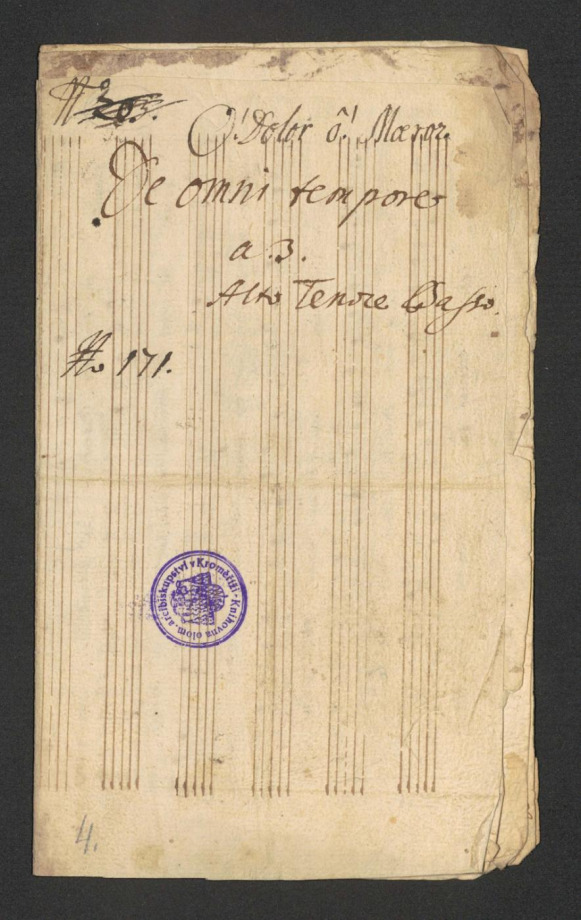 No 203.
O! Dolor ô! Mæror.
De omni tempore
a 3.
Alto Tenore Basso.
No 171.
Knihovna olom. arcibiskupství v Kroměříži
4.